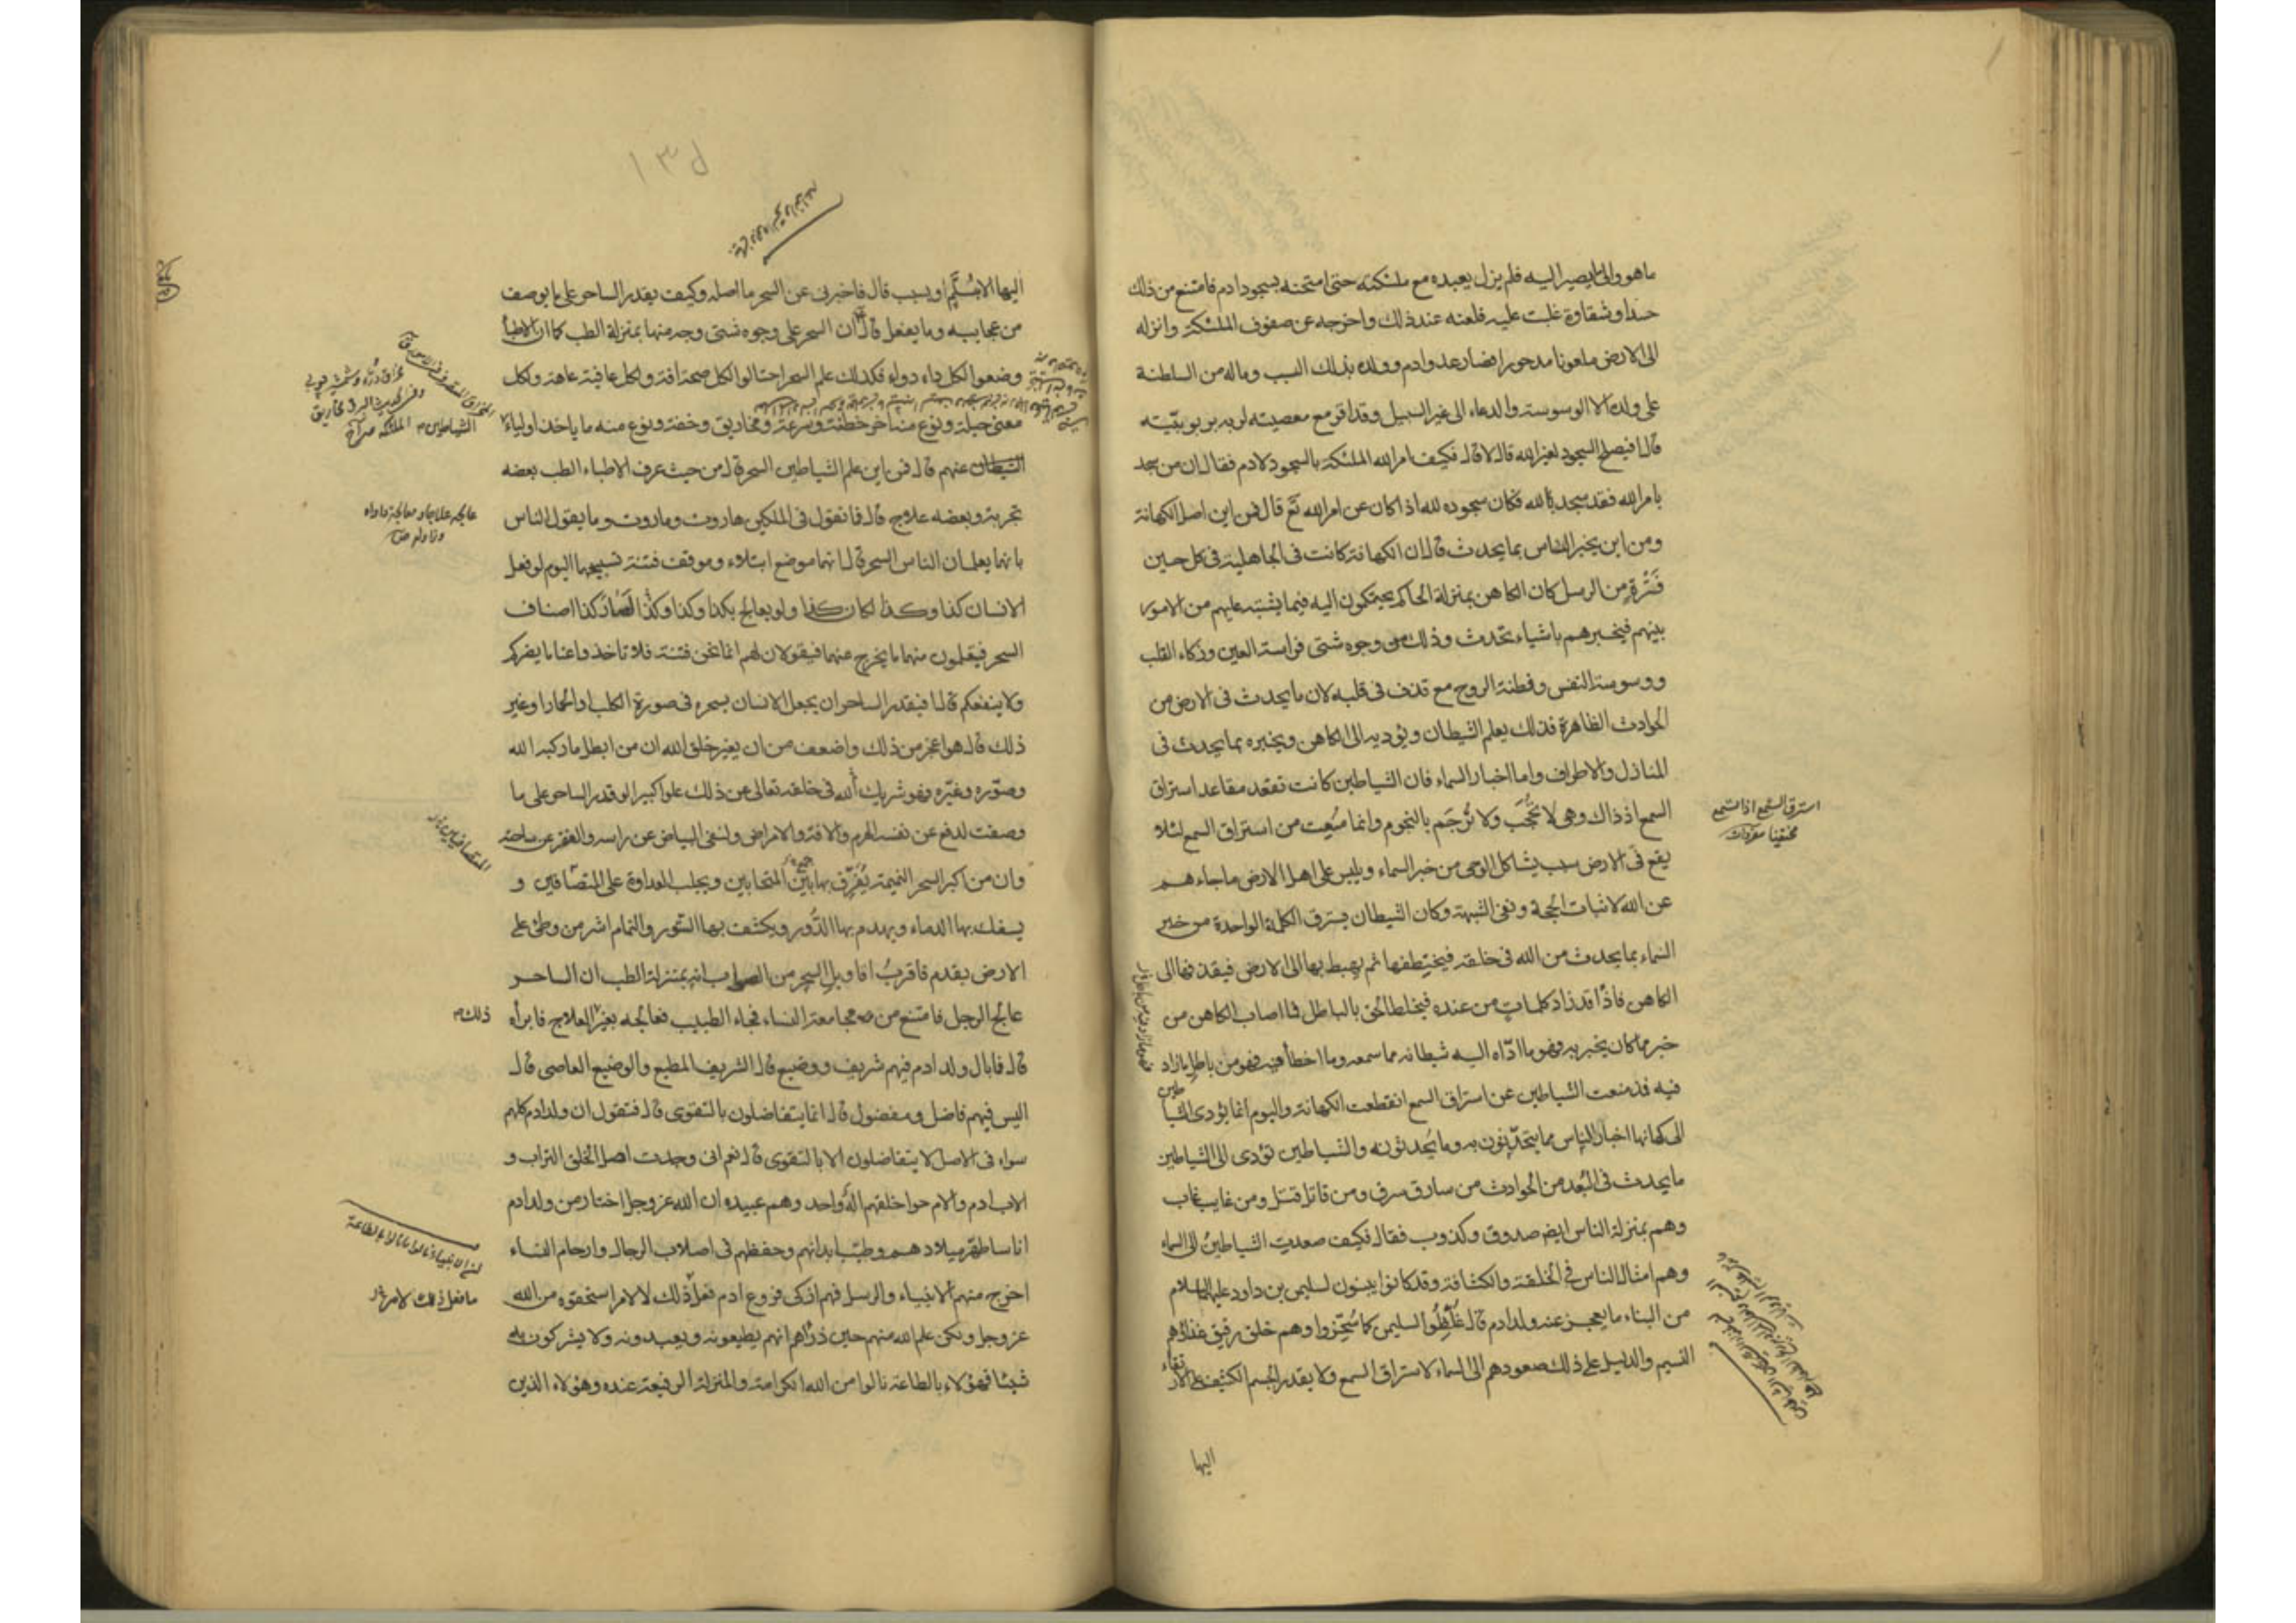 ما هو والى ما يصير اليه فلم يزل يعبده مع ملئكته حتى امتحنه بسجود ادم فامتنع من ذلك
حسدا وشقاوة غلبت عليه فلعنه عند ذلك واخرجه عن صفوف الملئكة وانزله
الى الارض ملعونا مدحورا فصار عدو ادم وولده بذلك السبب وماله من السلطنة
على ولده الا الوسوسة والدعاء الى غير السبيل وقد اقر مع معصيته لربه بربوبيته
قال افيصلح السجود لغير الله قال لا قال فكيف امر الله الملئكة بالسجود لادم فقال ان من سجد
بامر الله فقد سجد لله فكان سجوده لله اذا كان عن امر الله تع قال فمن اين اصل الكهانة
ومن اين يخبر الناس بما يحدث قال ان الكهانة كانت في الجاهلية في كل حين
فترة من الرسل كان الكاهن بمنزلة الحاكم يحتكمون اليه فيما يشتبه عليهم من الامور
بينهم فيخبرهم باشياء تحدث وذلك من وجوه شتى فراسة العين وذكاء القلب
ووسوسة النفس وفطنة الروح مع قذف في قلبه لان ما يحدث في الارض من
الحوادث الظاهرة فذلك يعلم الشيطان ويؤديه الى الكاهن ويخبره بما يحدث في
المنازل والاطراف واما اخبار السماء فان الشياطين كانت تقعد مقاعد استراق
السمع اذ ذاك وهي لا تحجب ولا ترجم بالنجوم وانما منعت من استراق السمع لئلا
استرق السمع اذا استمع
مختفيا
يقع في الارض سبب يشاكل الوحي من خبر السماء ويلبس على اهل الارض ما جاءهم
عن الله لاثبات الحجة ونفي الشبهة وكان الشيطان يسترق الكلمة الواحدة من خبر
السماء بما يحدث من الله في خلقه فيختطفها ثم يهبط بها الى الارض فيقذفها الى
الكاهن فاذا قد زاد كلمات من عنده فيخلط الحق بالباطل فما اصاب الكاهن من
خبر مما كان يخبر به فهو ما اداه اليه شيطانه مما سمعه وما اخطأ فيه فهو من باطل ما زاد
فيه فمذ منعت الشياطين عن استراق السمع انقطعت الكهانة واليوم انما يؤدى الشياطين
الى كهانها اخبار الناس مما يتحدثون به وما يحدثونه والشياطين تؤدى الى الشياطين
ما يحدث في البعد من الحوادث من سارق سرق ومن قاتل قتل ومن غايب غاب
وهم بمنزلة الناس ايضا صدوق وكذوب فقال فكيف صعدت الشياطين الى السماء
وهم امثال الناس في الخلقة والكثافة وقد كانوا يبنون لسليمن بن داود عليهما السلام
من البناء ما يعجز عنه ولد ادم قال غلظوا لسليمن كما سخروا وهم خلق رقيق غذاؤهم
النسيم والدليل على ذلك صعودهم الى السماء لاستراق السمع ولا يقدر الجسم الكثيف على الارتقاء
اليها
١٣٥
اليها الا بسلم او سبب قال فاخبرني عن السحر ما اصله وكيف يقدر الساحر على ما يوصف
من عجايبه وما يفعل قال ان السحر على وجوه شتى وجه منها بمنزلة الطب كما ان الاطباء
وضعوا لكل داء دواء فكذلك علم السحر احتالوا لكل صحة افة ولكل عافية عاهة ولكل
معنى حيلة ونوع منه اخر خطفة وسرعة ومخاريق وخفة ونوع منه ما ياخذ اولياء
الشيطان عنهم قال فمن اين علم الشياطين السحر قال من حيث عرف الاطباء الطب بعضه
تجربة وبعضه علاج قال فما تقول في الملكين هاروت وماروت وما يقول الناس
عالجه علاجا ومعالجة داواه
بانهما يعلمان الناس السحر قال انهما موضع ابتلاء وموقف فتنة تسبيحهما اليوم لو فعل
الانسان كذا وكذا لكان كذا ولو يعالج بكذا وكذا وكذا لصار كذا اصناف
السحر فيتعلمون منهما ما يخرج عنهما فيقولان لهم انما نحن فتنة فلا تاخذوا عنا ما يضركم
ولا ينفعكم قال افيقدر الساحر ان يجعل الانسان بسحره في صورة الكلب او الحمار او غير
ذلك قال هو اعجز من ذلك واضعف من ان يغير خلق الله ان من ابطل ما ركبه الله
وصوره وغيره فهو شريك الله في خلقه تعالى عن ذلك علوا كبيرا لو قدر الساحر على ما
وصفت لدفع عن نفسه الهرم والافة والامراض ولنفى البياض عن راسه والفقر عن ساحته
وان من اكبر السحر النميمة يفرق بها بين المتحابين ويجلب العداوة على المتصافين و
يسفك بها الدماء ويهدم بها الدور ويكشف بها الستور والنمام اشر من وطئ على
الارض بقدم فاقرب اقاويل السحر من الصواب انه بمنزلة الطب ان الساحر
عالج الرجل فامتنع من مجامعة النساء فجاء الطبيب فعالجه بغير العلاج فابرأه
ذلك
قال فما بال ولد ادم فيهم شريف ووضيع قال الشريف المطيع والوضيع العاصى قال
اليس فيهم فاضل ومفضول قال انما يتفاضلون بالتقوى قال فتقول ان ولد ادم كلهم
سواء في الاصل لا يتفاضلون الا بالتقوى قال نعم انى وجدت اصل الخلق التراب و
الاب ادم والام حوا خلقهم اله واحد وهم عبيده ان الله عز وجل اختار من ولد ادم
اناسا طهر ميلادهم وطيب ابدانهم وحفظهم في اصلاب الرجال وارحام النساء
اخرج منهم الانبياء والرسل فهم ازكى فروع ادم فعل ذلك لا لامر استحقوه من الله
ما فعل ذلك لامر
عز وجل ولكن علم الله منهم حين ذرأهم انهم يطيعونه ويعبدونه ولا يشركون به
شيئا فهؤلاء بالطاعة نالوا من الله الكرامة والمنزلة الرفيعة عنده وهؤلاء الذين